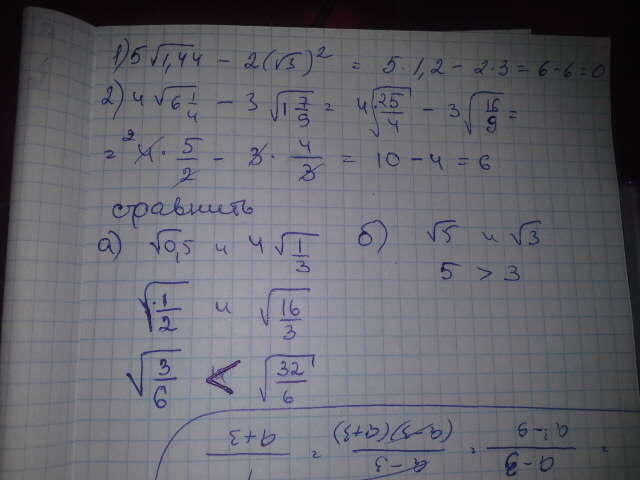 1) 5√1,44 - 2(√3)² = 5·1,2 - 2·3 = 6-6=0
2) 4√6 1/4 - 3√1 7/9 = 4√25/4 - 3√16/9 =
= ²4 · 5/2 - 3 · 4/3 = 10 - 4 = 6
сравнить
а) √0,5 и 4√1/3 б) √5 и √3
√1/2 и √16/3 5 > 3
√3/6 < √32/6
1/(a+3) = (a-3)/((a-3)(a+3)) = (a-3)/(a²-9) =